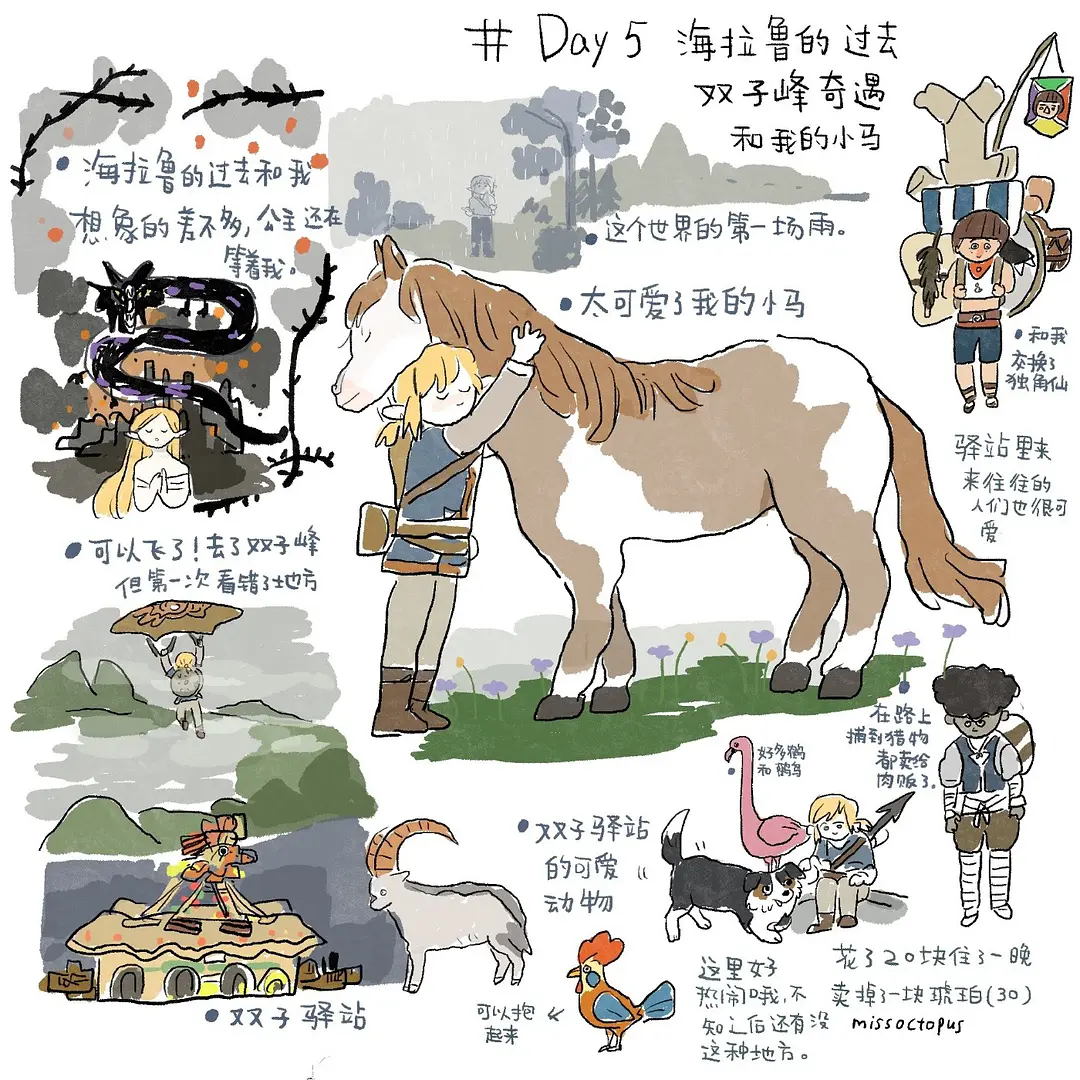 # Day 5 海拉鲁的过去
双子峰奇遇
和我的小马
海拉鲁的过去和我
想象的差不多,公主还在
等着我。
这个世界的第一场雨。
太可爱了我的小马
和我
交换了
独角仙
驿站里来
来往往的
人们也很可
爱
可以飞了!去了双子峰
但第一次看错了地方
在路上
捕到猎物
都卖给
肉贩了.
好多鹤
和鹬鸟
双子驿站
的可爱
动物
双子驿站
可以抱
起来
这里好
热闹哦,不
知之后还有没
这种地方。
花了20块住了一晚
卖掉了一块琥珀(30)
missoctopus